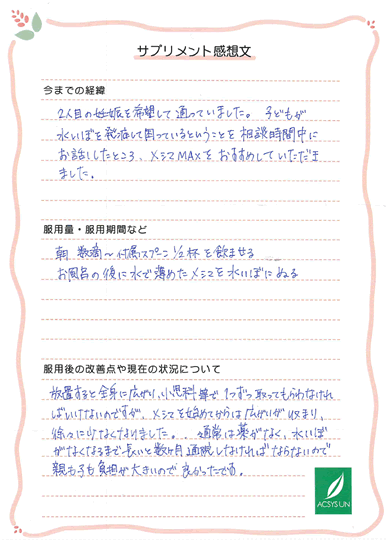 サプリメント感想文
今までの経緯
2人目の妊娠を希望して通っていました。子どもが
水いぼを発症して困っているということを相談時間中に
お話したところ、メシマMAXをおすすめしていただき
ました。
服用量・服用期間など
朝 数滴～付属スプーン1/2杯を飲ませる
お風呂の後に水で薄めたメシマを水いぼにぬる
服用後の改善点や現在の状況について
放置すると全身に広がり、小児科等で1つずつ取ってもらわなけれ
ばいけないのですが、メシマを始めてからは広がりが収まり、
徐々に少なくなりました。通常は薬がなく、水いぼ
がなくなるまで長いと数ヶ月通院しなければならないので
親も子も負担が大きいので良かったです。
ACSYS UN